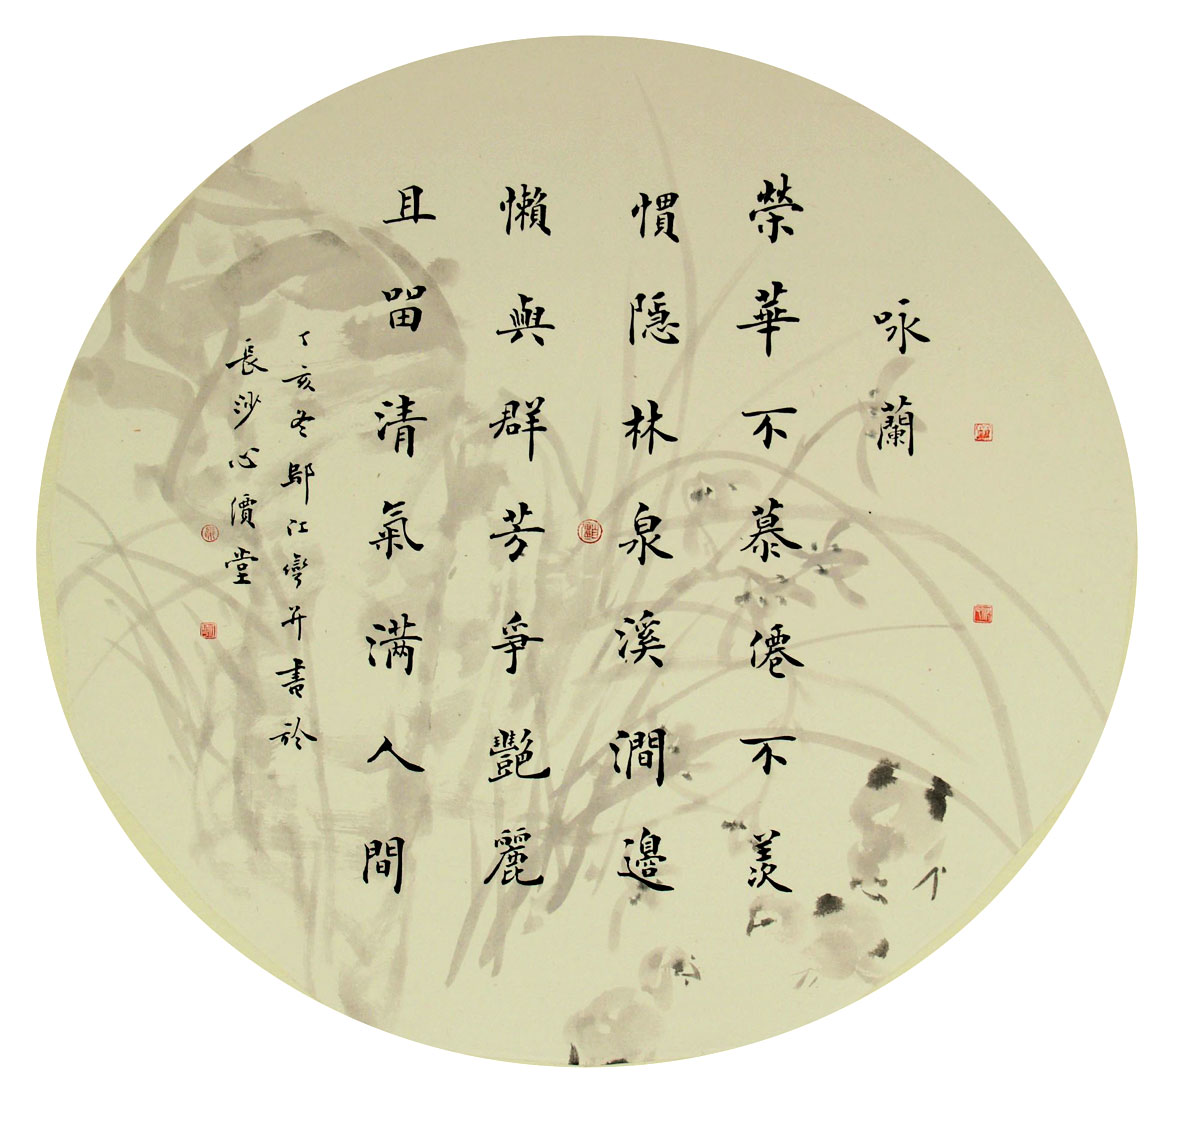 咏蘭
榮華不慕僊不羨
慣隱林泉溪澗邊
懶與群芳爭艷麗
且留清氣满人間
丁亥冬鄔江彎并書於
長沙心價堂